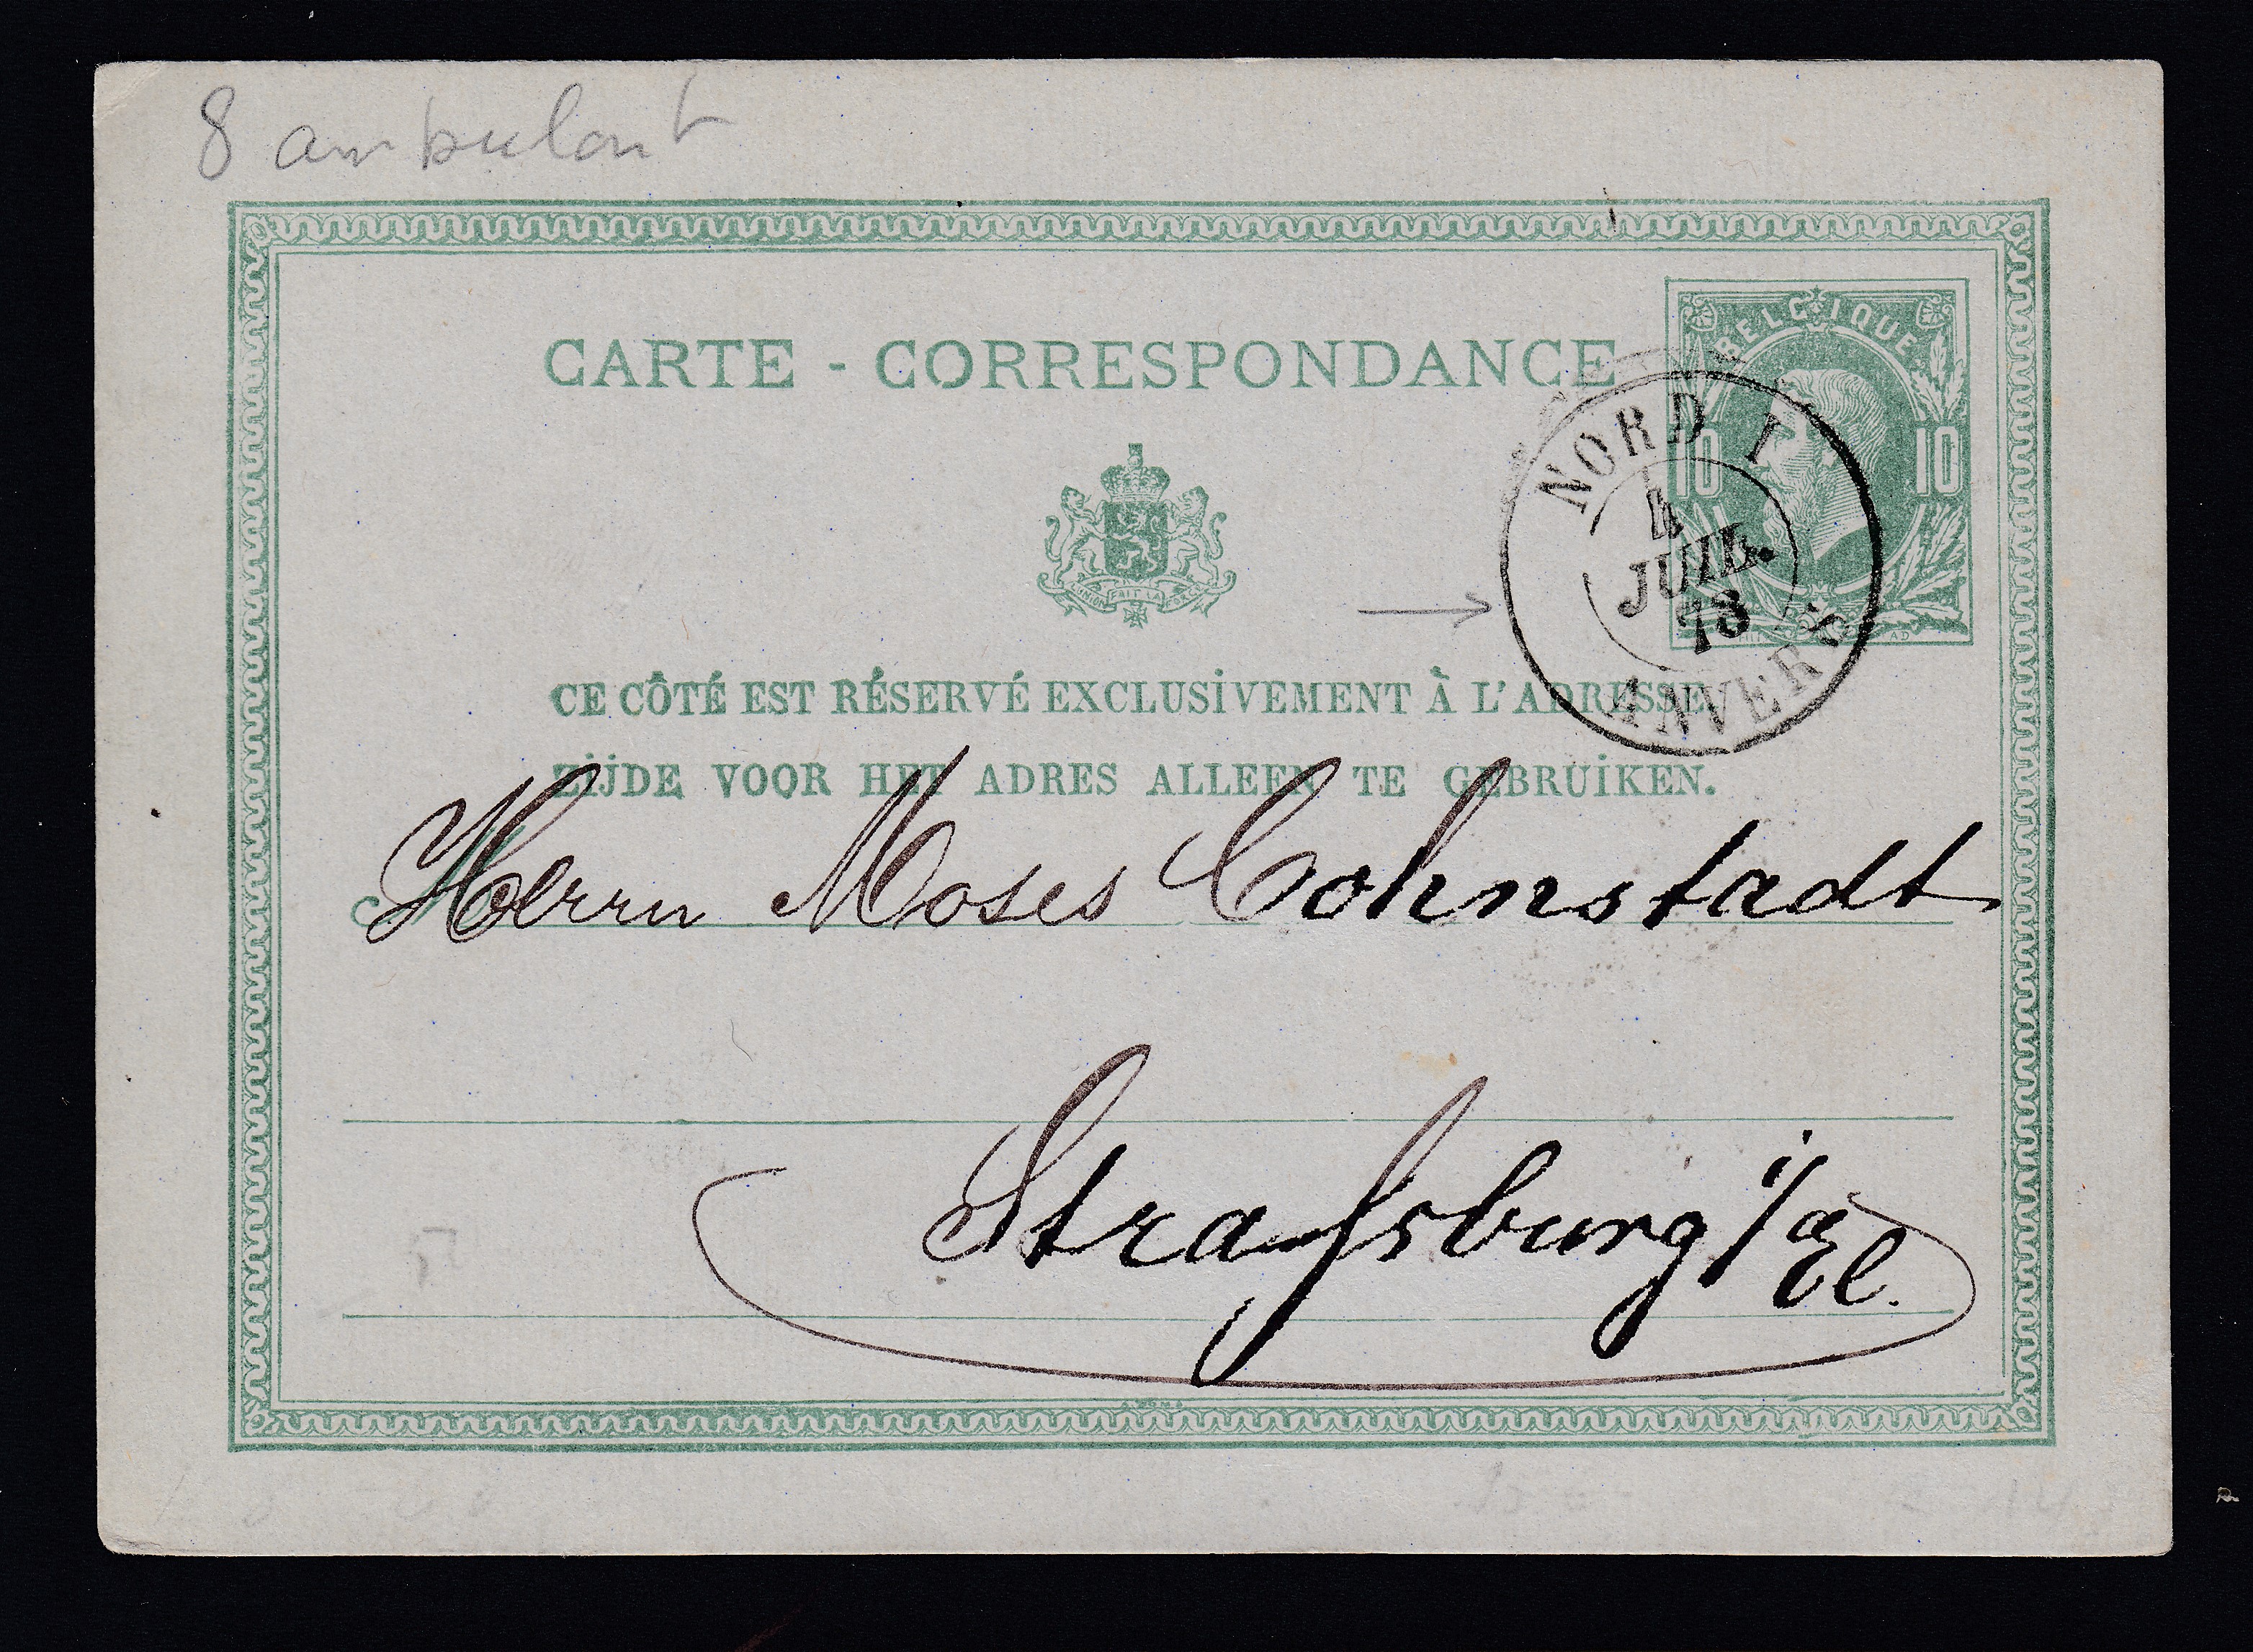 8 ambulant
CARTE - CORRESPONDANCE
BELGIQUE
10 10
NORD I
4
JUIL.
73
ANVERS
UNION FAIT LA FORCE
CE CÔTÉ EST RÉSERVÉ EXCLUSIVEMENT À L'ADRESSE.
ZIJDE VOOR HET ADRES ALLEEN TE GEBRUIKEN.
Herrn Moses Cohnstadt
Strafsburg i/El.